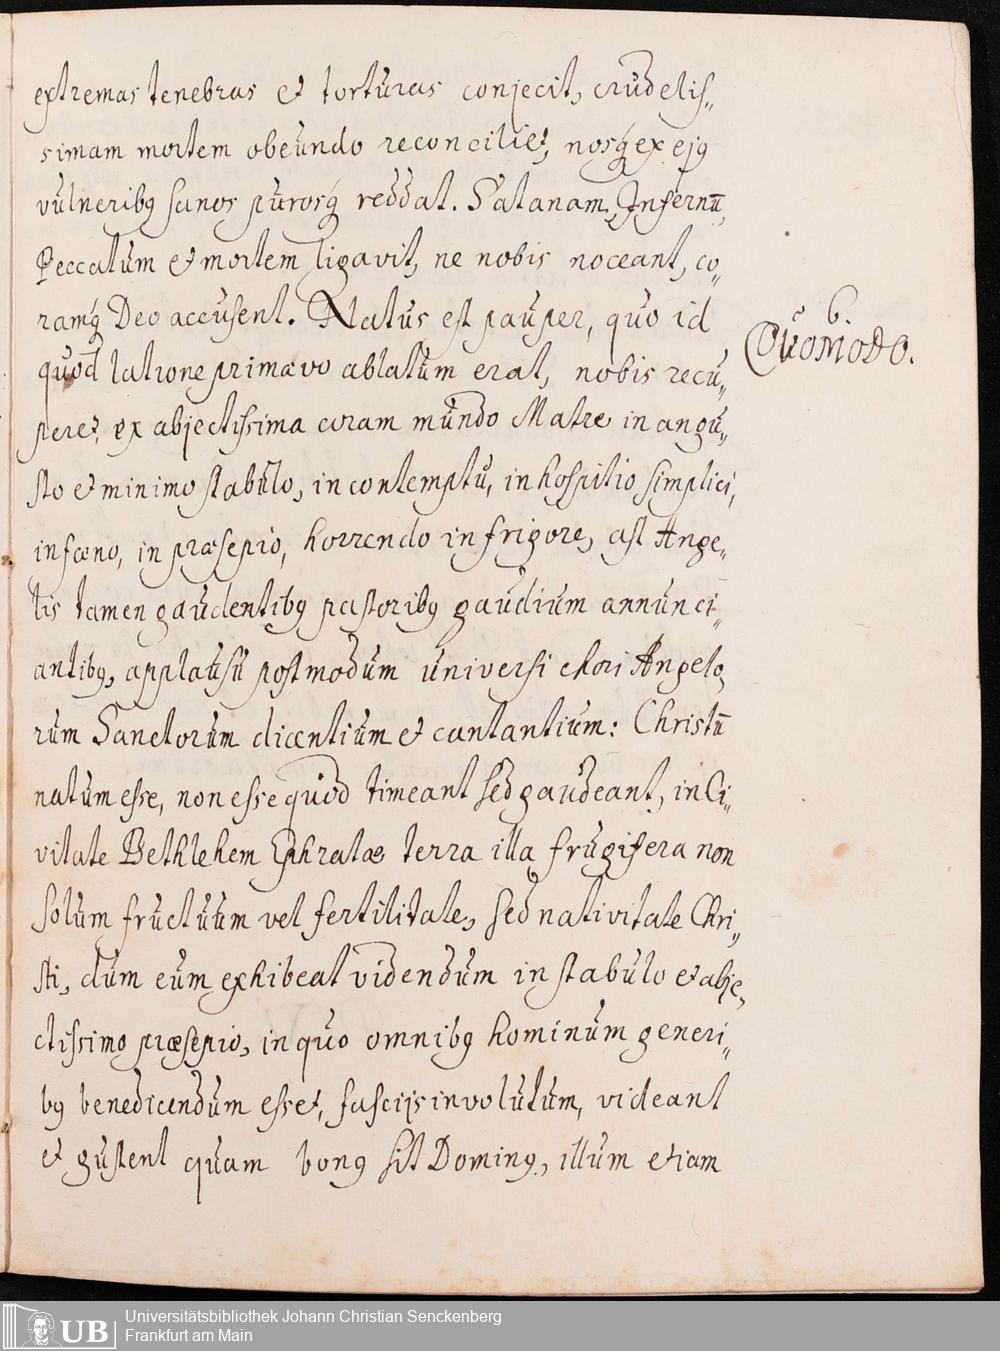 extremas tenebras et torturas conjecit, crudelis„
simam mortem obeundo reconciliet, nosq́ ex ejꝯ
vulneribꝯ sanos purosq́ reddat. Satanam, Infernū,
Peccatum et mortem ligavit, ne nobis noceant, co„
ramq́ Deo accusent. Natus est pauper, quo id
6.
Quomodo.
quod latrone primævo ablatum erat, nobis recu„
peret, ex abjectissima coram mundo Matre in angu„
sto et minimo stabulo, in contemptu, in hospitio simplici,
in fœno, in præsepio, horrendo in frigore, ast Ange„
lis tamen gaudentibꝯ pastoribꝯ gaudium annunci„
antibꝯ, applausu postmodum universi chori Angelo„
rum Sanctorum dicentium et cantantium: Christū
natum esse, non esse quod timeant sed gaudeant, in Ci„
vitate Bethlehem Ephratæ terra illa frugifera non
solum fructuum vel fertilitate, sed nativitate Chri„
sti, dum eum exhibeat videndum in stabulo et abje„
ctissimo præsepio, in quo omnibꝯ hominum generi„
bꝯ benedicendum esset, fascijs involutum, videant
et gustent quam bonꝯ sit Dominꝯ, illum etiam
UB
Universitätsbibliothek Johann Christian Senckenberg
Frankfurt am Main